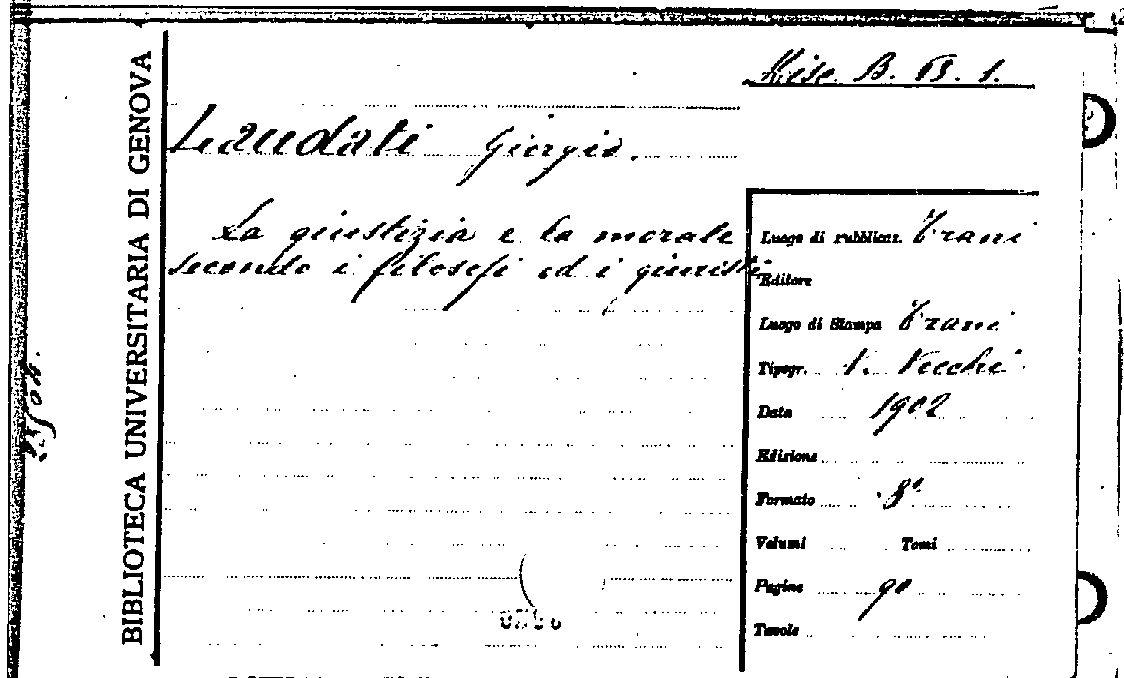 Misc. B. B. 1.
BIBLIOTECA UNIVERSITARIA DI GENOVA
Laudati Giorgio.
La giustizia e la morale
secondo i filosofi ed i giuristi
Luogo di pubblicaz. Trani
Editore
Luogo di Stampa Trani
Tipogr. V. Vecchi
Data 1902
Edizione
Formato 8°
Volumi Tomi
Pagine 90
Tavole